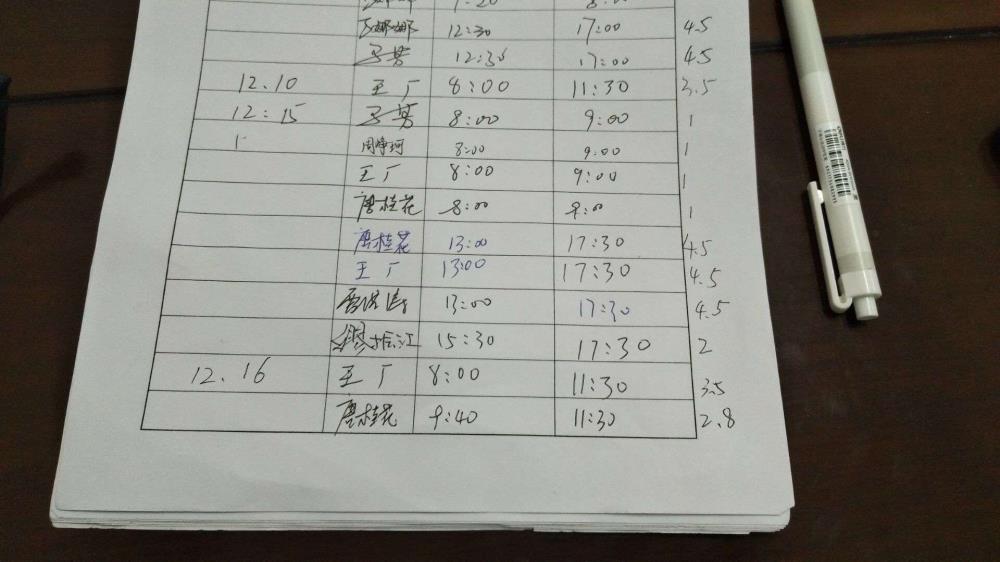 7:20
娜娜 12:30 17:00 4.5
12:30 17:00 4.5
12.10 王厂 8:00 11:30 3.5
12:15 8:00 9:00 1
8:00 9:00 1
王厂 8:00 9:00 1
唐桂花 8:00 9:00 1
唐桂花 13:00 17:30 4.5
王厂 13:00 17:30 4.5
13:00 17:30 4.5
15:30 17:30 2
12.16 王厂 8:00 11:30 3.5
唐桂花 9:40 11:30 2.8